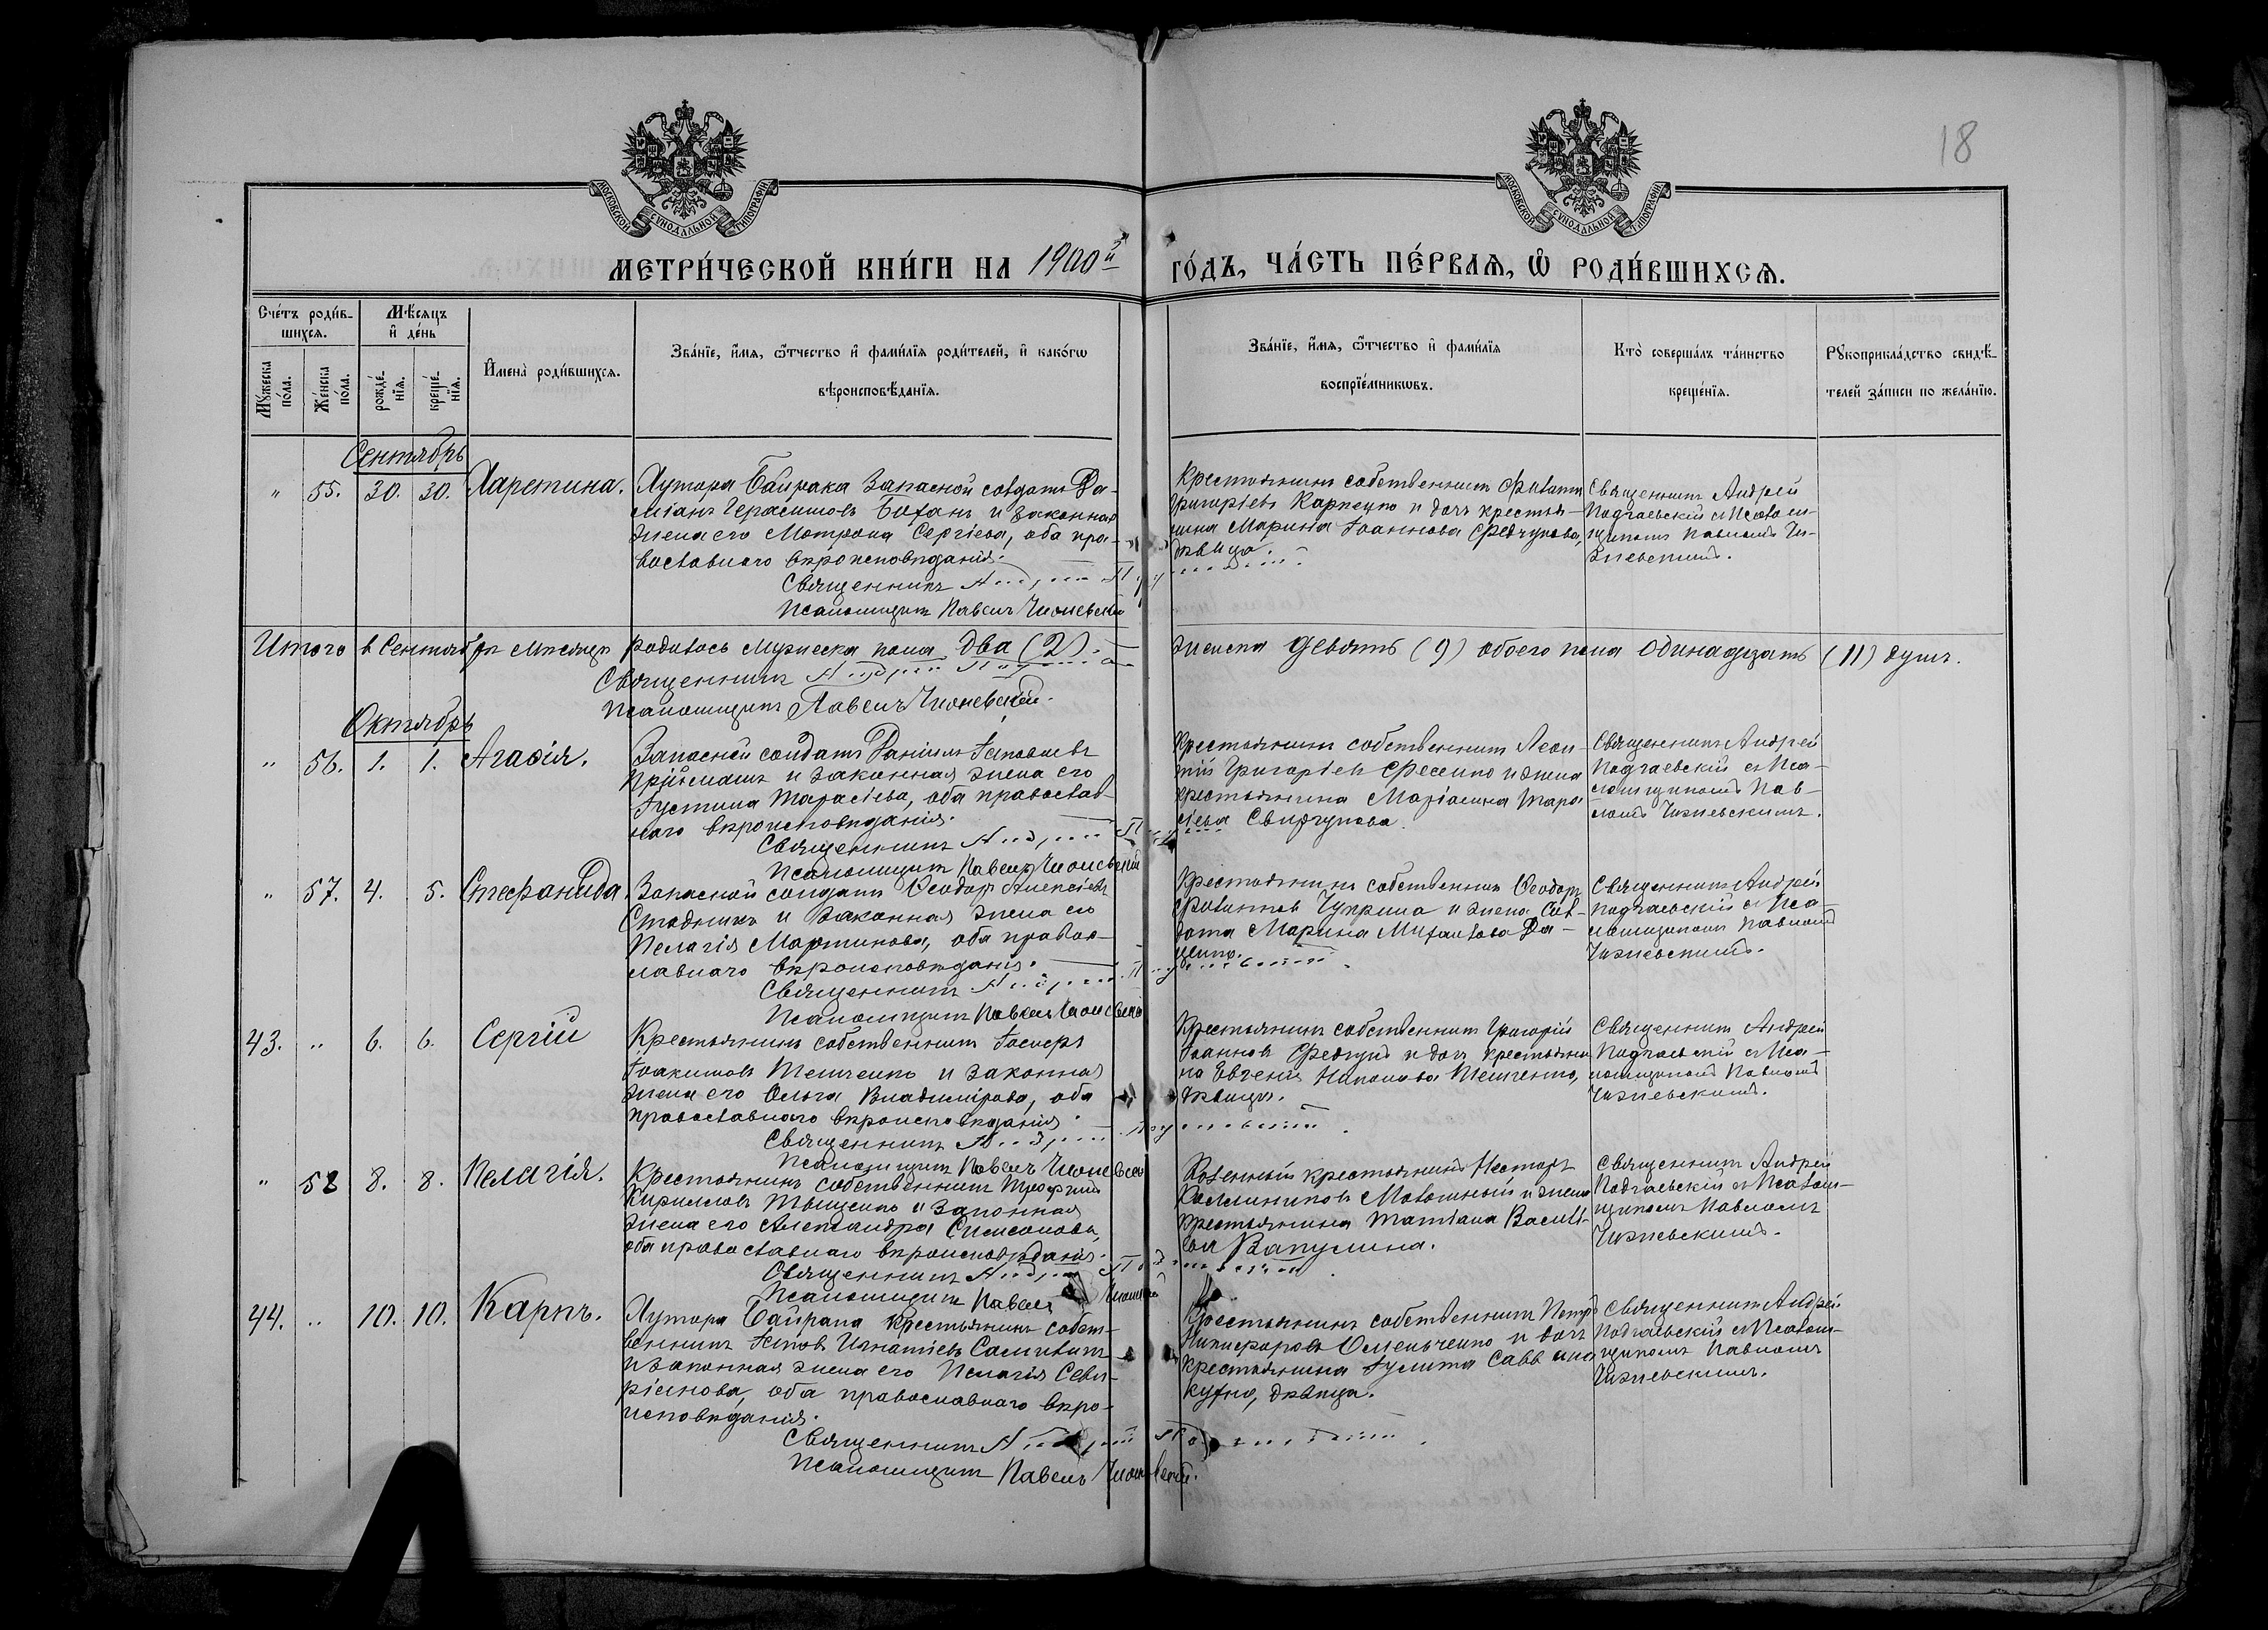 18
МОСКОВСКОЙ СѴНОДАЛЬНОЙ ТИПОГРАФІИ
МОСКОВСКОЙ СѴНОДАЛЬНОЙ ТИПОГРАФІИ
МЕТРИ́ЧЕСКОЙ КНИ́ГИ НА 1900й ГО́ДЪ, ЧА́СТЬ ПЕ́РВАѦ, Ѽ РОДИ́ВШИХСѦ.
Сче́тъ роди́в-
шихсѧ.
Мꙋ́жеска по́ла.
Же́нска по́ла.
Мѣ́сѧцъ
и҆ де́нь
рожде́-
нїѧ.
креще́-
нїѧ.
И҆мена̀ роди́вшихсѧ.
Зва́нїе, и҆́мѧ, ѻ҆́тчество и҆ фами́лїѧ роди́телей, и҆ како́гѡ
вѣроисповѣ́данїѧ.
Зва́нїе, и҆́мѧ, ѻ҆́тчество и҆ фами́лїѧ
воспрїе́мникѡвъ.
Кто̀ соверша́лъ та́инство
креще́нїѧ.
Рꙋкоприкла́дство свидѣ́-
телей за́писи по жела́нїю.
Сентябрь
" 55. 30. 30. Харетина.
Хутора Байрака Запасной солдатъ Да-
міанъ Герасимовъ Боханъ и законная
жена его Мотрона Сергіева, оба пра-
вославнаго вѣроисповѣданія.
Священникъ
Псаломщикъ Павелъ Чижевскій
Крестьянинъ собственникъ Филиппъ
Григоріевъ Карпецъ и дочь крестья-
нина Марина Іоаннова Федчунова,
дѣвица.
Священникъ Андрей
Подгаевскій с Псалом-
щикомъ Павломъ Чи-
жевскимъ.
Итого в Сентябрѣ мѣсяцѣ родилось мужеска пола два (2) женска девять (9) обоего пола одинадцать (11) душъ.
Священникъ
Псаломщикъ Павелъ Чижевскій.
Октябрь
" 56. 1. 1. Агафія.
Запасной солдатъ Даніилъ
Пріймакъ и законная жена его
Іустина Тарасіева, оба православ-
наго вѣроисповѣданія.
Священникъ
Псаломщикъ Павелъ Чижевскій
Крестьянинъ собственникъ Леон-
тій Григоріевъ Фесенко и жена
крестьянина Маріамна Тара-
сіева
Священникъ Андрей
Подгаевскій с Пса-
ломщикомъ Пав-
ломъ Чижевскимъ.
" 57. 4. 5. Стефанида
Запасной солдатъ Ѳеодоръ Алексіевъ
Стадникъ и законная жена его
Пелагія Мартинова, оба правос-
лавнаго вѣроисповѣданія.
Священникъ
Псаломщикъ Павелъ Чижевскій
Крестьянинъ собственникъ Ѳеодоръ
Филипповъ Чуприна и жена сол-
дата Марина Михаилова Да-
ценко.
Священникъ Андрей
Подгаевскій с Пса-
ломщикомъ Павломъ
Чижевскимъ.
43. " 6. 6. Сергій
Крестьянинъ собственникъ
Іоакимовъ Тешченко и законная
жена его Ольга Владимірова, оба
православнаго вѣроисповѣданія.
Священникъ
Псаломщикъ Павелъ Чижевскій
Крестьянинъ собственникъ Григорій
Іоанновъ Федчунъ и дочь крестьяни-
на Евгенія Тешченко,
дѣвица.
Священникъ Андрей
Подгаевскій с Пса-
ломщикомъ Павломъ
Чижевскимъ.
" 58 8. 8. Пелагія.
Крестьянинъ собственникъ Трофимъ
Кирилловъ и законная
жена его Александра Симеонова,
оба православнаго вѣроисповѣданія.
Священникъ
Псаломщикъ Павелъ
Казенный крестьянинъ Несторъ
Каллиниковъ и жена
крестьянина Татіана Василі-
ева Вакулина.
Священникъ Андрей
Подгаевскій с Псалом-
щикомъ Павломъ
Чижевскимъ.
44. " 10. 10. Карпъ.
Хутора Байрака крестьянинъ собст-
венникъ Игнатіевъ
и законная жена его Пелагія Севи-
ріанова, оба православнаго вѣро-
исповѣданія.
Священникъ
Псаломщикъ Павелъ Чижевскій.
Крестьянинъ собственникъ Петръ
Никифоровъ Омельченко и дочь
крестьянина Іулитта Саввина
дѣвица.
Священникъ Андрей
Подгаевскій с Псалом-
щикомъ Павломъ
Чижевскимъ.